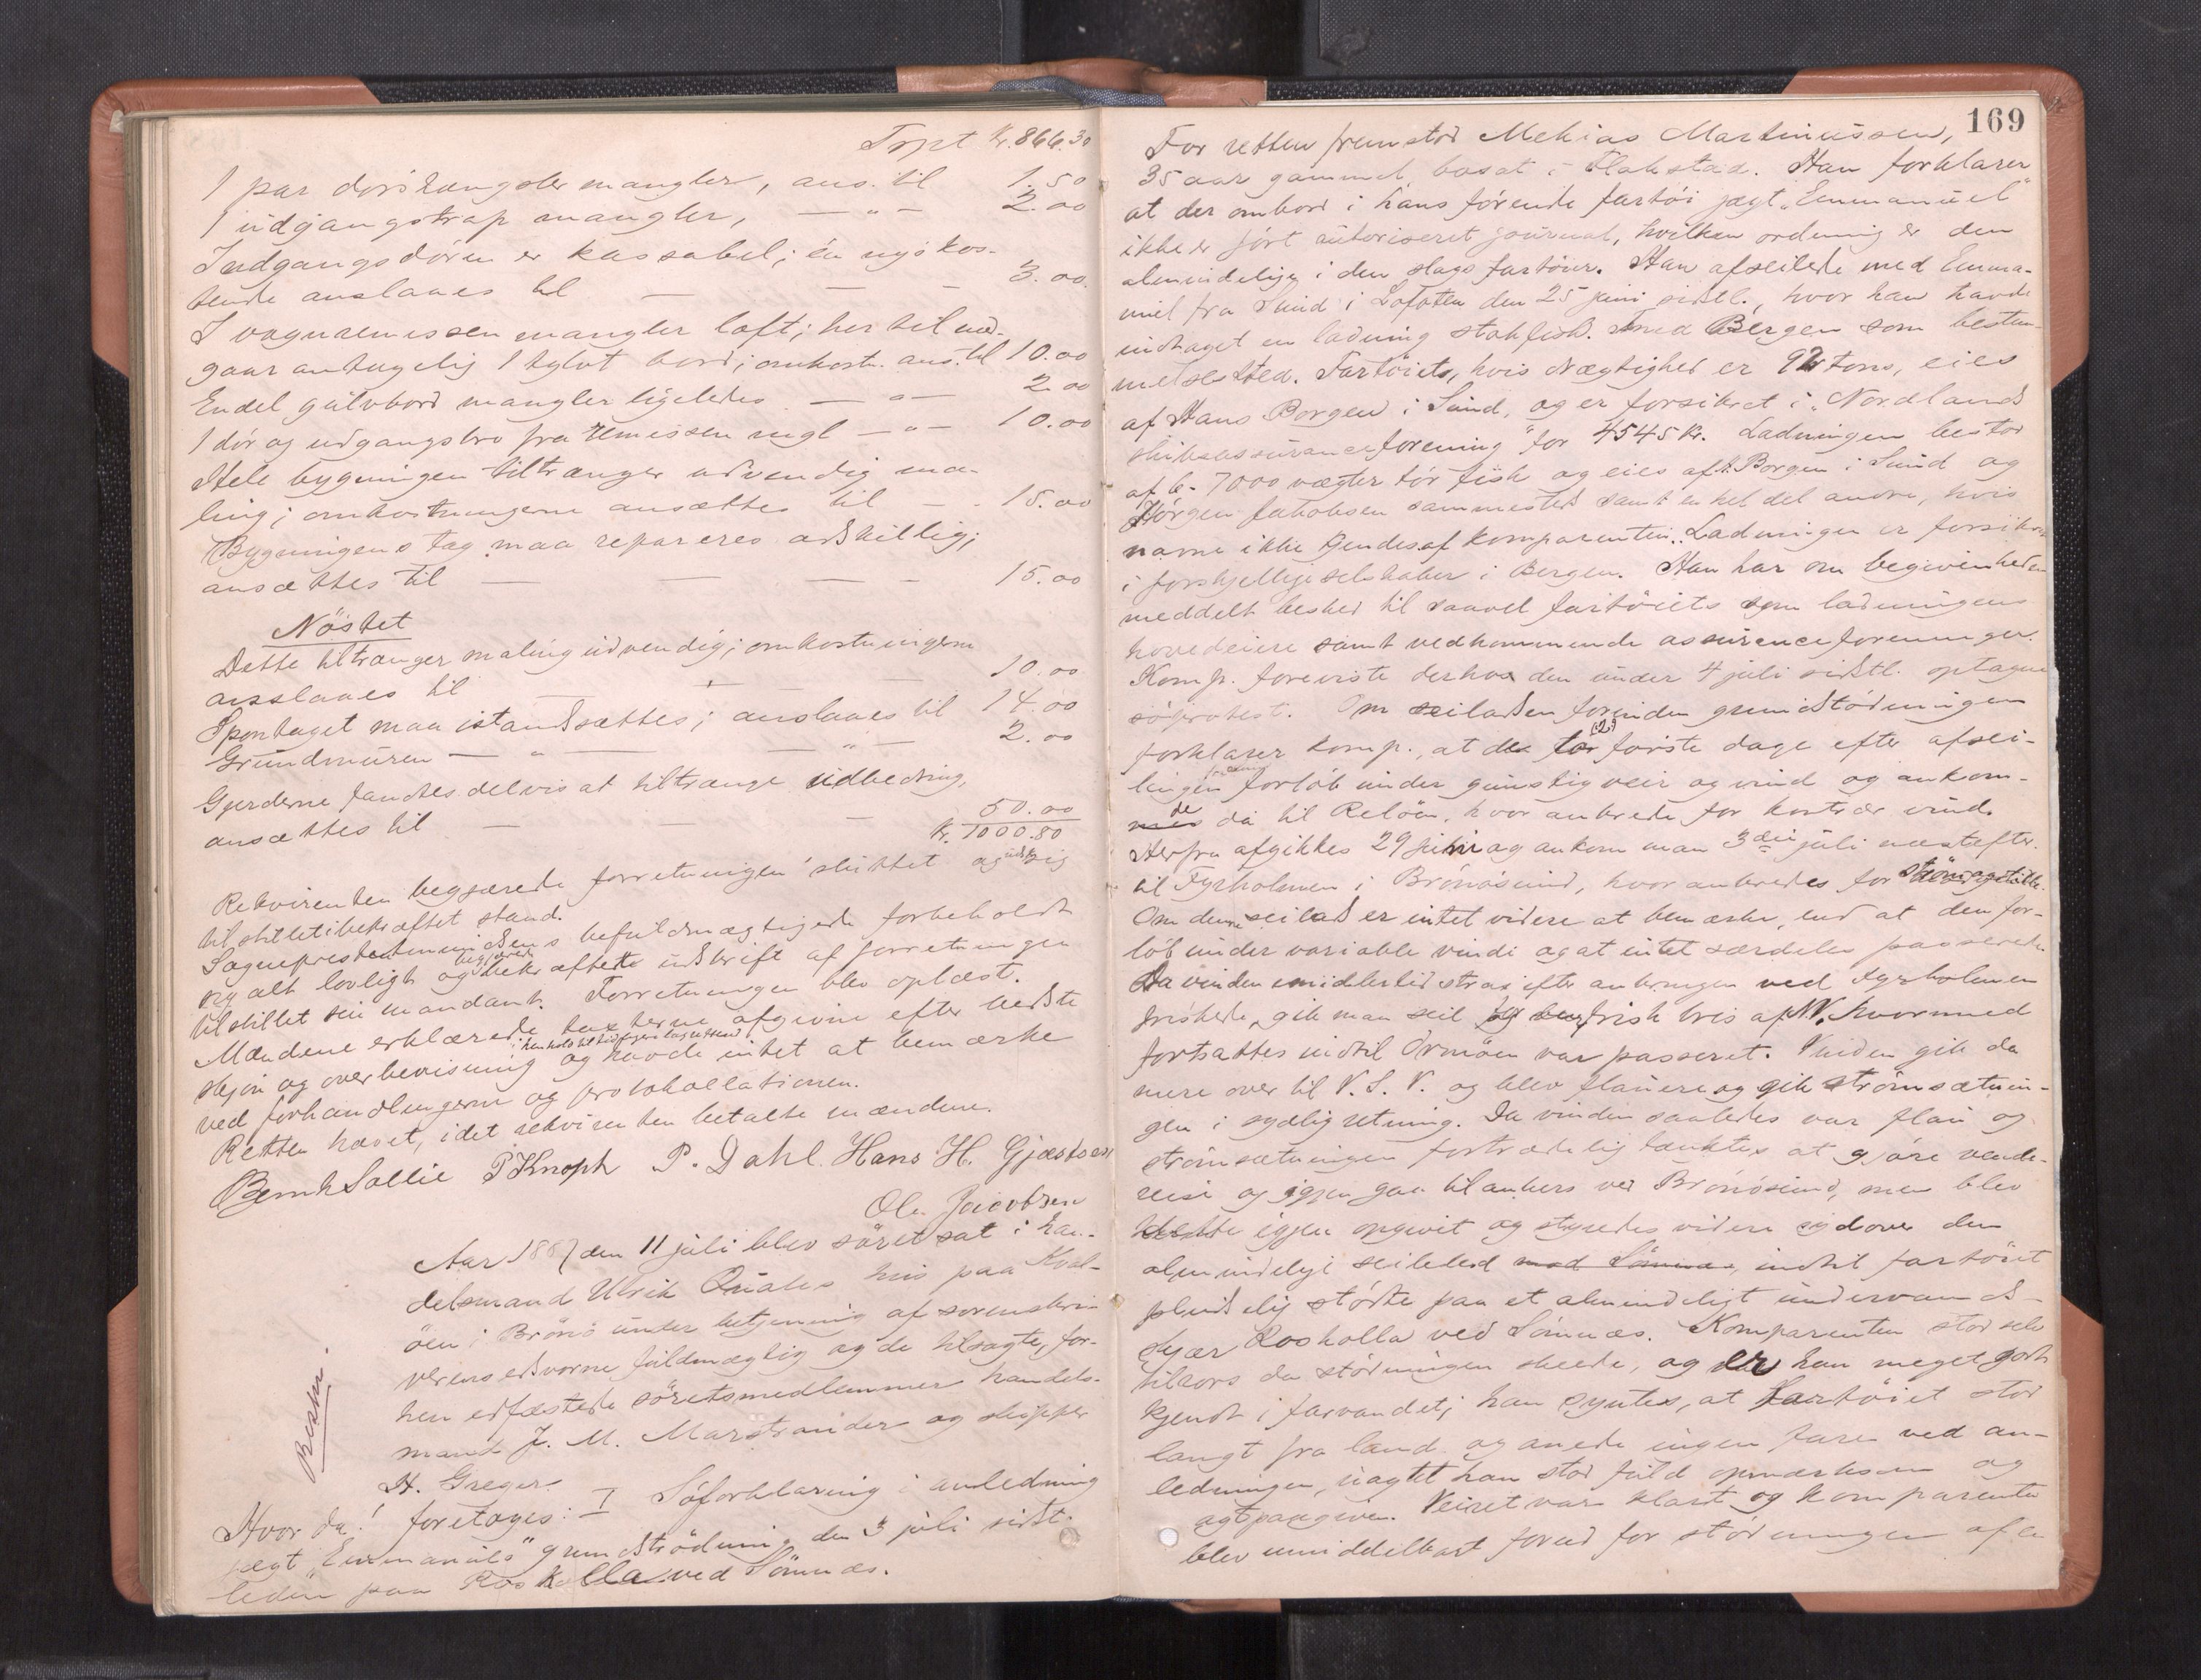 Trpt Kr. 866.30
1 par dørshængsler mangler, ans. til 1.50
1 udgangstrap mangler, — " — 2.00
Indgangsdøren er kassabel; én ny's kos-
tende anslaaes til — — — 3.00.
I vognremissen mangler loft; her til med-
gaar antagelig 1 tylvt bord; omkostn. ans. til 10.00
Endel gulvbord mangler ligeledes — " — 2.00
1 dør og udgangsbro fra remissen mgl — " — 10.00
Hele bygningen tiltrænger udvendig ma-
ling; omkostningerne ansættes til — - 15.00
Bygningens tag maa repareres adskillig;
ansættes til — — — - 15.00
Nöstet
Dette tiltrænger maling udvendig; omkostningerne
anslaaes til — — — 10.00
Spontaget maa istandsættes; anslaaes til 14.00
Grundmuren — " — — " — 2.00
Gjerderne fandtes delvis at tiltrænge udbedring,
ansættes til — — — 50.00
Kr. 1000.80
Rekvirenten begjærede forretningen sluttet og udskr. sig
tilstillet i bekræftet stand.
Sognepresten befuldmægtigede forbeholdt
sig alt lovligt og begjærede bekræftede udskrift af forretningen
tilstillet sin mandant. Forretningen blev oplæst.
Mændene erklærede taxterne afgivne efter bedste
skjøn og overbevisning og havde intet at bemærke
ved forhandlingerne og protokollationen.
Retten hævet, idet rekvirenten betalte mændene.
Bernh Sollie P Knoph P. Dahl. Hans H. Gjæstsen
Ole Jacobsen
Aar 1887 den 11 juli blev søret sat i han-
delsmand Ulrik Quales hus paa Kval-
öen i Brönö under betjening af sorenskri-
verens edsvorne fuldmægtig og de tilsagte, for-
hen edfæstede søretsmedlemmer handels-
mand J. M. Marstrander og skipper
H. Greger.
Beskr.
Hvor da! foretoges: I Søforklaring i anledning
jægt "Emmanuels" grundstødning den 3 juli sidst-
leden paa Roskolla ved Sömnæs.
169
For retten fremstod Mekias Martinussen,
35 aar gammel, bosat i Flakstad. Han forklarer
at der ombord i hans førende fartøi jægt "Emmanuel"
ikke er ført autoriseret journal, hvilken ordning er den
almindelige i den slags fartøier. Han afseilede med Emma-
nuel fra Sund i Lofoten den 25 juni sidstl., hvor han havde
indtaget en ladning stokfisk med Bergen som bestem-
melsessted. Fartøiets, hvis drægtighed er 92 tons, eies
af Hans Borgen i Sund, og er forsikret i "Nordlands
skibsassuranceforening" for 4545 kr. Ladningen bestod
af c. 7000 vægter tør fisk og eies af H. Borgen i Sund og
Jørgen Jakobsen sammested samt en hel del andre, hvis
navne ikke kjendes af komparenten. Ladningen er forsikret
i forskjellige selskaber i Bergen. Han har om begivenheden
meddelt besked til saavel fartøiets som ladningens
hovedeiere samt vedkommende assuranceforeninger.
Komp. foreviste derhos den under 4 juli sidstl. optagne
søprotest. Om seiladsen forinden grundstødningen
forklarer komp., at de to (2) første dage efter afsei-
lingen forløb under gunstig veir og vind og ankom-
mes de da til Reløen, hvor ankrede for kontrær vind.
Herfra afgikkes 29 juni og ankom man 3die juli næstefter
til Tyrholmen i Brönösund, hvor ankredes for strøm og stille.
Om denne seilads er intet videre at bemærke, end at den for-
løb under variable vinde og at intet særdeles passerede.
Da vinden imidlertid strax efter ankringen ved Tyrholmen
friskede, gik man seil frisk bris af N.V. hvormed
fortsattes indtil Ormöen var passeret. Vinden gik da
mere over til V.S.V. og blev flauere og gik strømsætnin-
gen i sydlig retning. Da vinden saaledes var flau og
strømsætningen fortrædelig tænktes at gjøre vende-
reise og igjen gaa tilankers ved Brönösund, men blev
dette igjen opgivet og styredes videre sydover den
almindelige seileled med Sömnæs, indtil fartøiet
pludselig stødte paa et almindeligt undervands-
skjær Roskolla ved Sömnæs. Komparenten stod selv
tilrors da stødningen skeede, og er han meget godt
kjendt i farvandet; han syntes, at fartøiet stod
langt fra land og anede ingen fare ved an-
ledningen, uagtet han stod fuld opmærksom og
agtpaagiven. Veiret var klart og komparenten
blev umiddelbart forud for stødningen af en